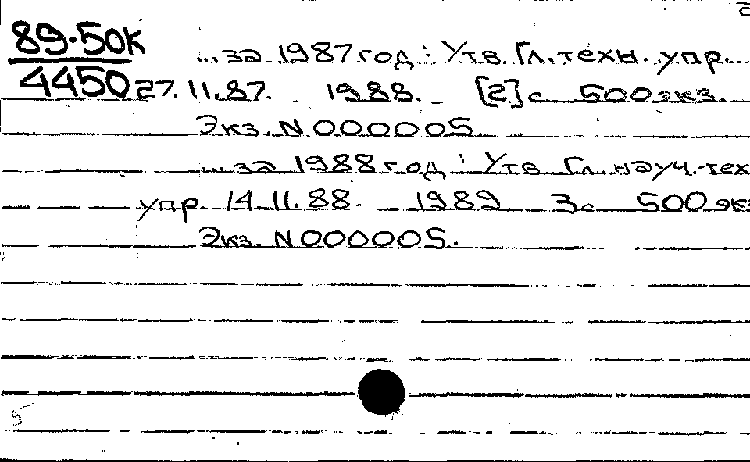 89-50к
4450
...за 1987 год : Утв. Гл. техн. упр.
27.11.87. 1988. [2] с 500 экз.
Экз. N 000005
...за 1988 год : Утв Гл. науч.-тех
упр. 14.11.88. 1989 3 с 500 экз
Экз. N 000005.